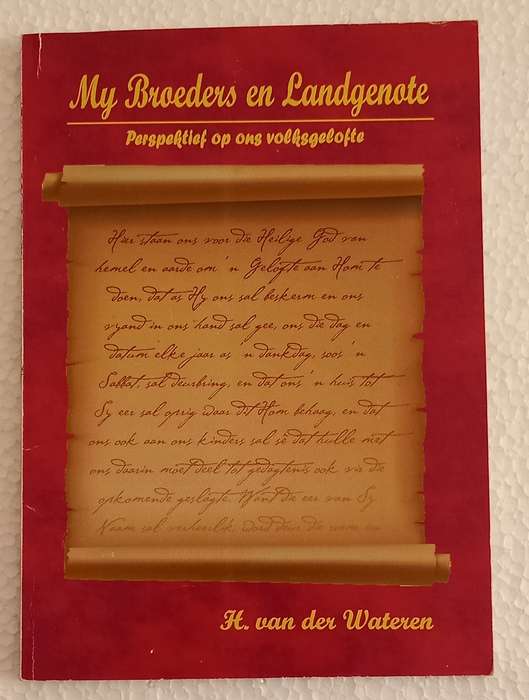 My Broeders en Landgenote
Perspektief op ons volksgelofte
Hier staan ons voor die Heilige God van
hemel en aarde om 'n Gelofte aan Hom te
doen, dat as Hy ons sal beskerm en ons
vyand in ons hand sal gee, ons die dag en
datum elke jaar as 'n dankdag, soos 'n
Sabbat, sal deurbring, en dat ons 'n huis tot
Sy eer sal oprig waar dit Hom behaag, en dat
ons ook aan ons kinders sal sê dat hulle met
ons daarin moet deel tot gedagtenis ook vir die
opkomende geslagte. Want die eer van Sy
Naam sal verheerlik word deur die roem en
H. van der Wateren